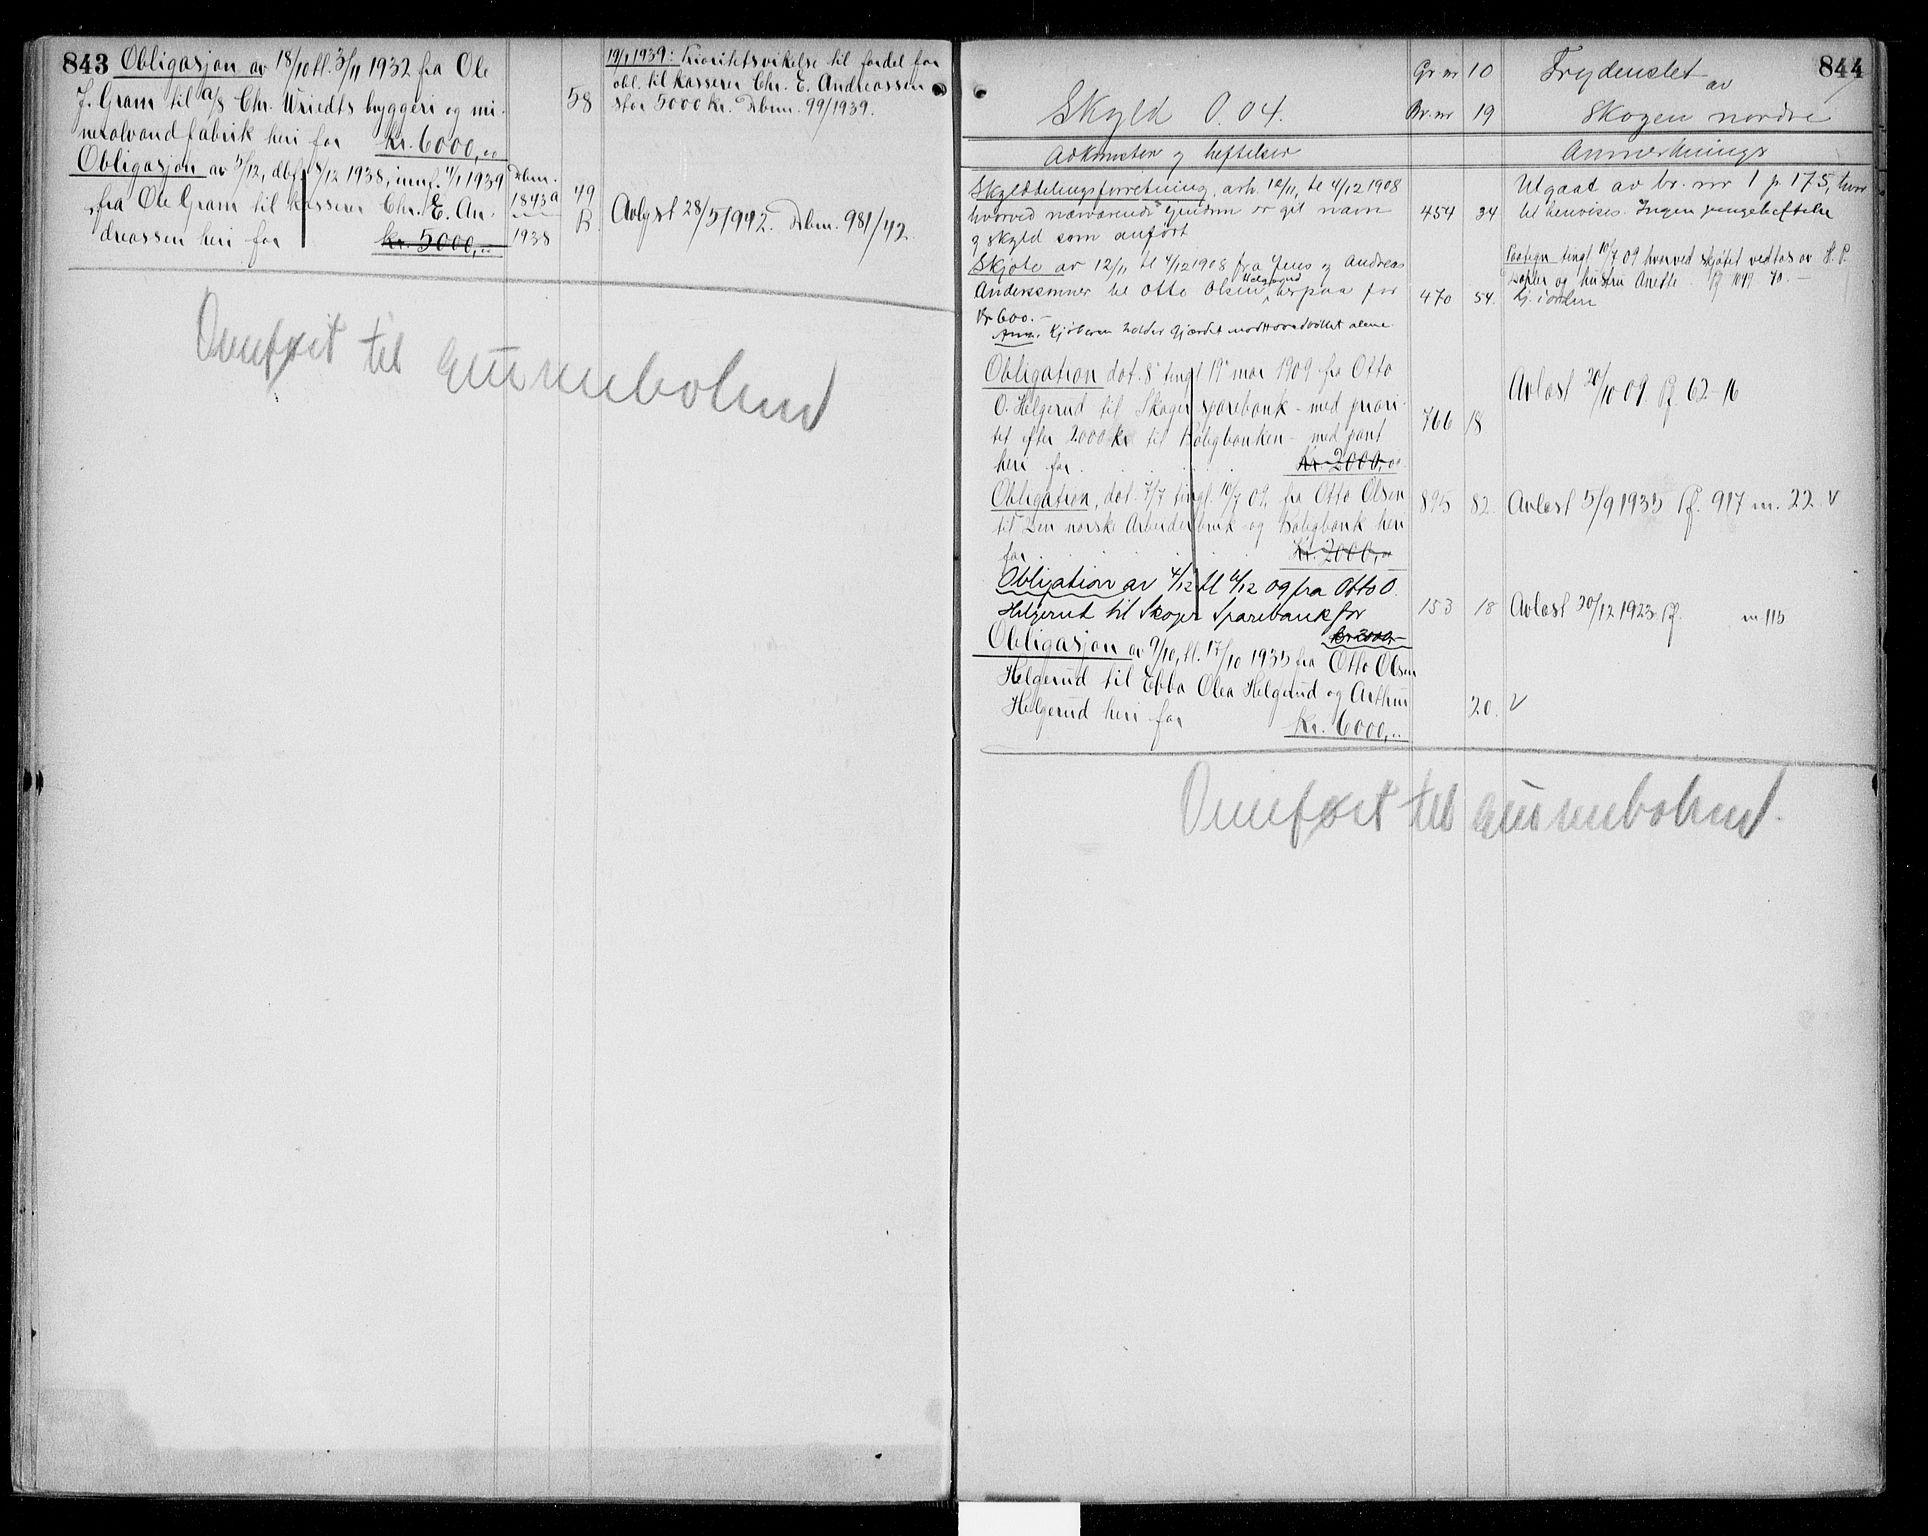 843 Obligasjon av 18/10 tl. 3/11 1932 fra Ole
J. Gram til A/S Chr. Wriedts bryggeri og mi-
neralvandfabrik heri for kr. 6000,00
58
Obligasjon av 5/12, dbf. 8/12 1938, innf. 4/1 1939
fra Ole Gram til kasserer Chr. E. An-
dreassen heri for kr. 5000,00
Dbnr.
1843a
1938
49
B.
19/1 1939: Prioritetsvikelse til fordel for
obl. til kasserer Chr. E. Andreassen
stor 5000 kr. Dbnr. 99/1939.
Avlyst 28/5 1942. Dbnr. 981/42
Overført til grunnboken
844
Skyld 0.04.
Gr nr 10
Br. nr 19
Frydenslet
av
Skogen nordre
Adkomster og heftelser
Anmerkninger
Skylddelingsforretning, avh. 10/11, tl 4/12 1908
hvorved nærværende eiendom er git navn
og skyld som anført
454 34
Utgaat av br. nr 1 p. 175, hvor
til henvises. Ingen pengeheftelse
Skjøte av 12/11 tl 4/12 1908 fra Jens og Andreas
Anderssønner til Otto Olsen Helgerud herpaa for
Kr 600.-
Anm. Kjøberen holder gjærdet mot Hovedbøllet alene
470 54.
Paategn. tingl. 10/7 09 hvorved skjøtet vedtas av
og hustru Anette
Obligation dat. 8 tingl 19 mai 1909 fra Otto
O. Helgerud til Skoger sparebank - med priori-
tet efter 2000 kr til Boligbanken - med pant
heri for kr 2000,00
766 18
Avlæst 20/10 09 Pf 62-16
Obligation, dat. 7/7 tingl. 10/7 09, fra Otto Olsen
til Den norske Arbeiderbruk og Boligbank heri
for Kr. 2000,00
895 82.
Avlæst 5/9 1935 Pf. 917 m. 22. V
Obligation av 4/12 tl 6/12 09 fra Otto O.
Helgerud til Skoger Sparebank for
kr 2000,-
153 18
Avlæst 20/12 1923 Pf. m 115
Obligasjon av 9/10, tl. 17/10 1935 fra Otto Olsen
Helgerud til Ebba Olea Helgerud og Arthur
Helgerud heri for kr. 6000,00
20. V
Overført til grunnboken.